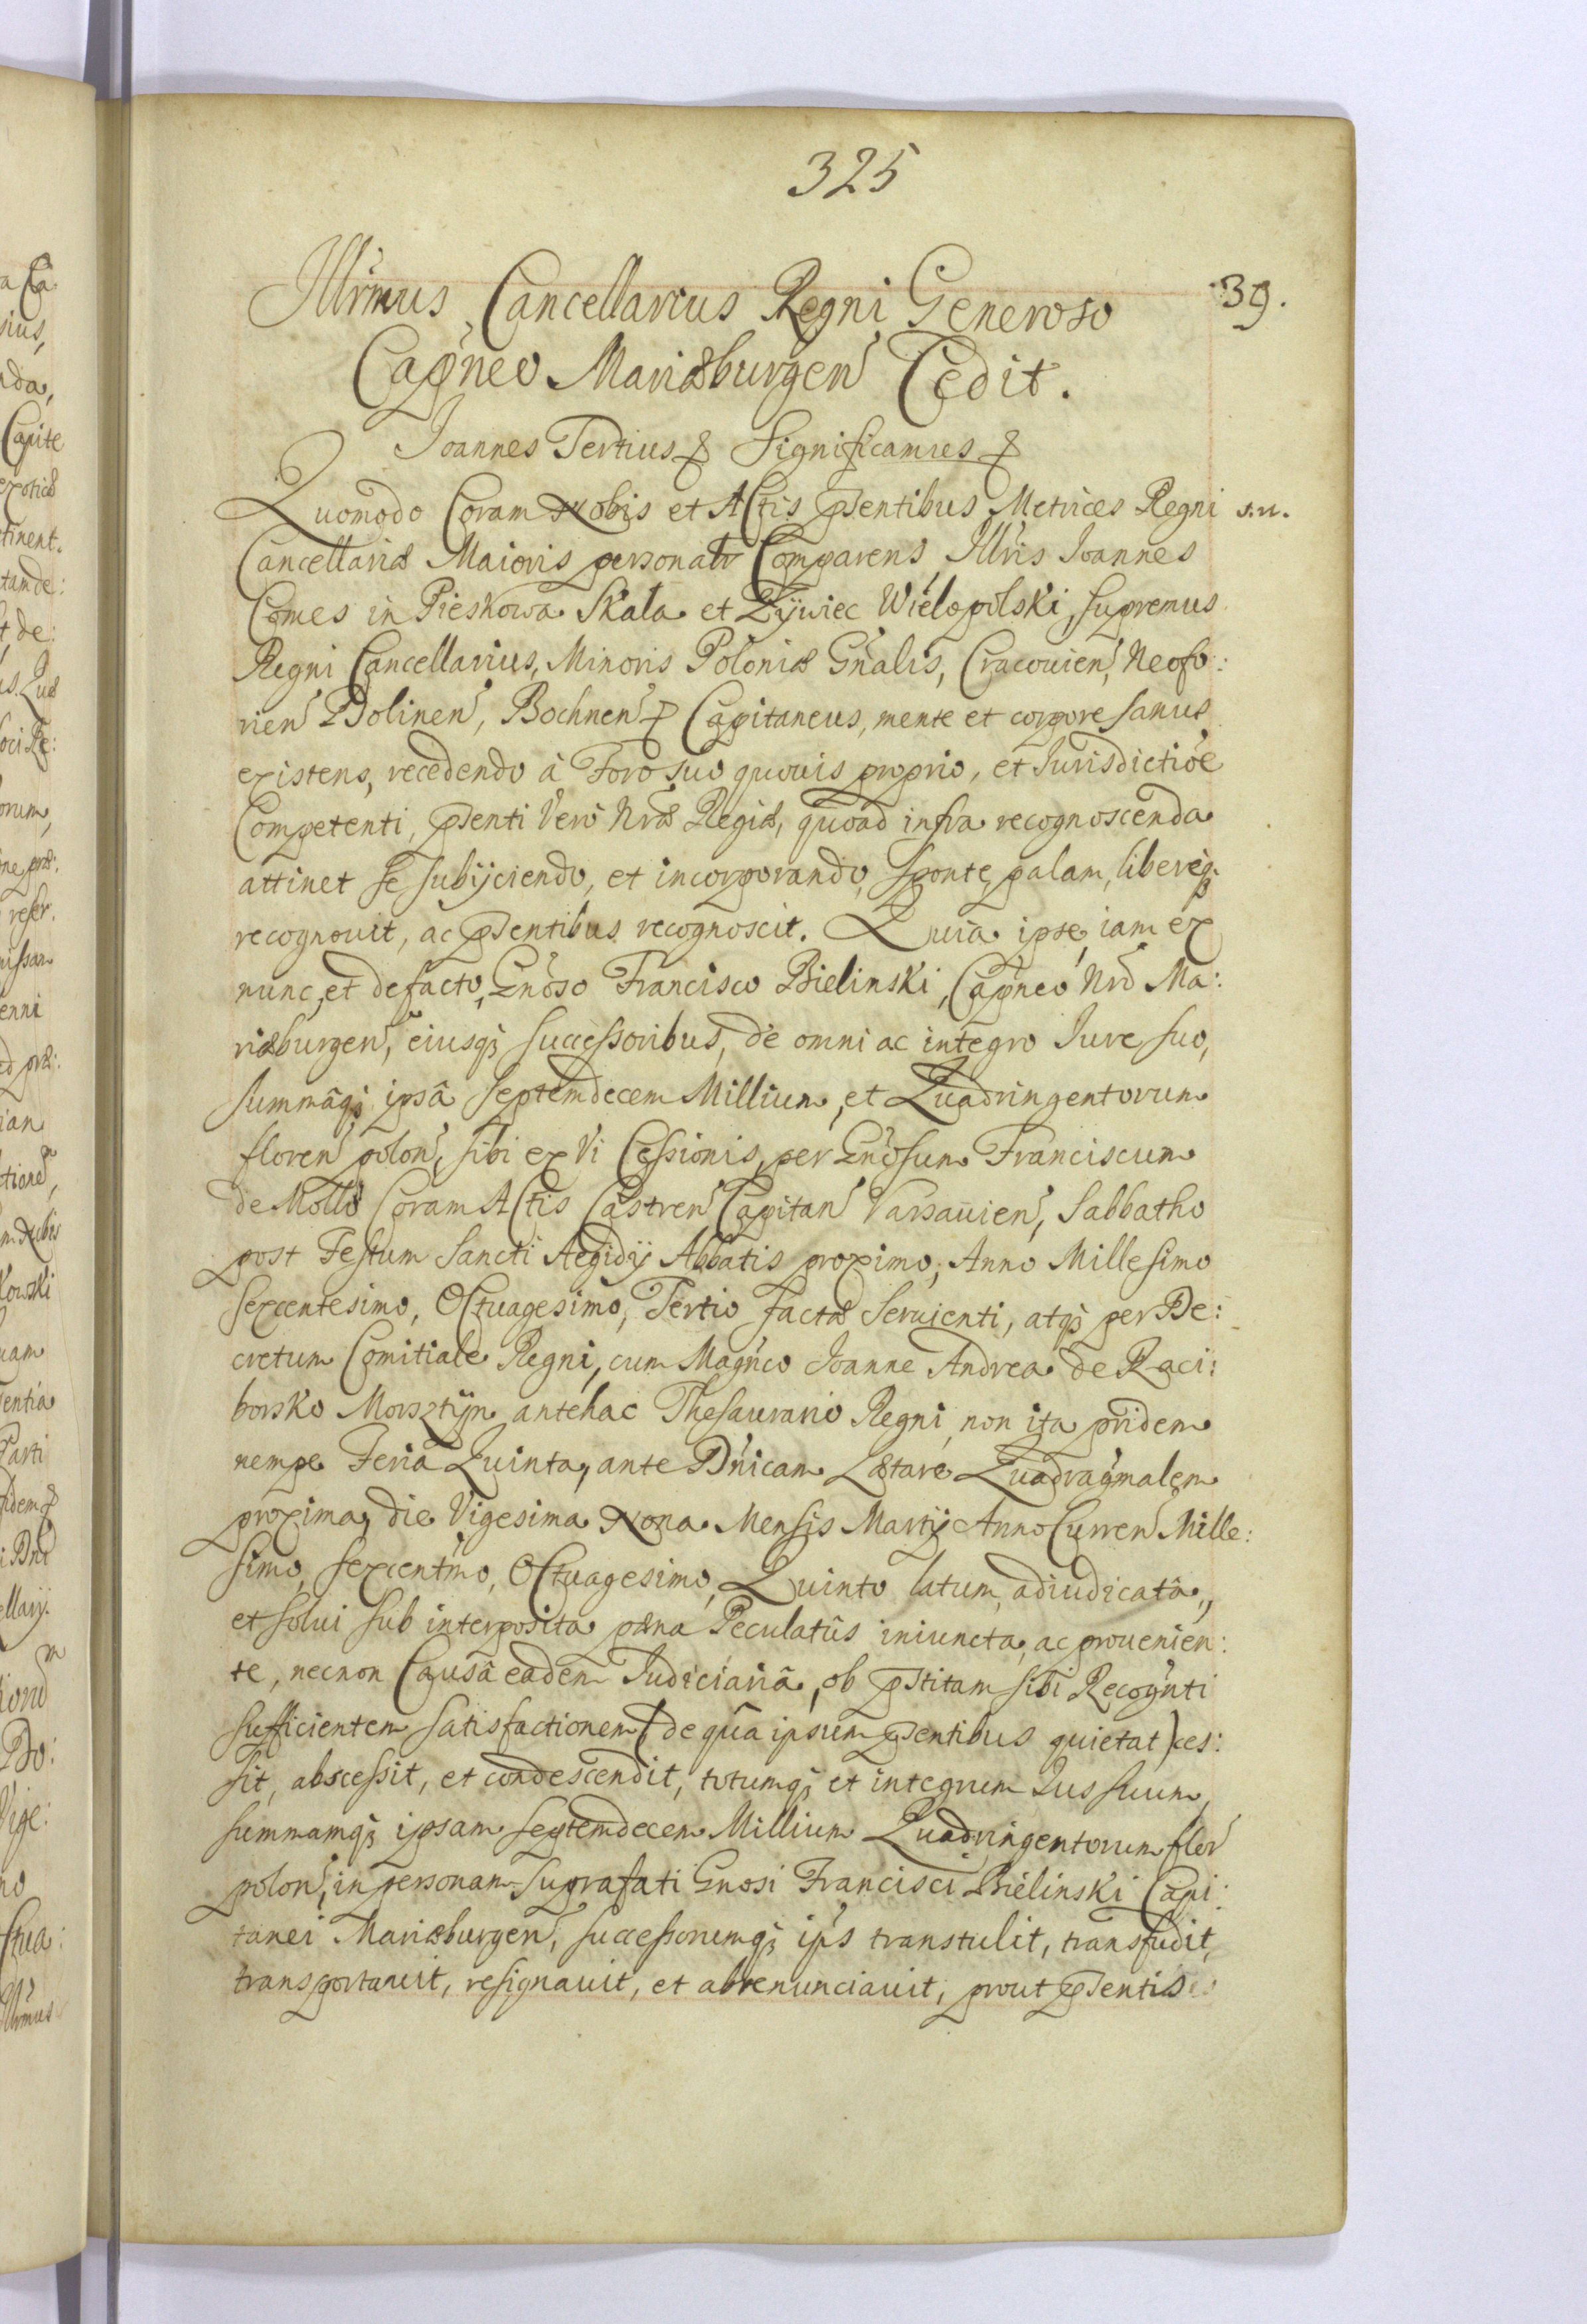 325
Illrmus Cancellarius Regni Generoso
39.
Capneo Mariæburgen Cedit.
Joannes Tertius &c Significamus &c
Quomodo Coram Nobis et Actis pntibus Metrices Regni
s.n.
Cancellariæ Maioris personalr Comparens Illris Joannes
Comes in Pieskowa Skala et Zÿwiec Wielopolski, supremus
Regni Cancellarius, Minoris Poloniæ Gnalis, Cracouien, Neofo:
rien Dolinen, Bochnen &c Capitaneus, mente et corpore sanus
existens, recedendo à Foro suo quouis proprio, et Jurisdictioe
Competenti, pnti Vero Nræ Regiæ, quoad infra recognoscenda
attinet se subijciendo, et incorporando, sponte, palam, libereq;
recognouit, ac pntibus recognoscit. Quia ipse iam ex
nunc, et defacto, Gnoso Francisco Bielinski, Capneo Nro Ma:
riæburgen, eiusq; successoribus, de omni ac integro Jure suo,
summâq; ipsâ Septemdecem Millium, et Quadringentorum
floren polon, sibi ex Vi Cessionis, per Gnosum Franciscum
de Mollo Coram Actis Castren Capitan Varsauien, Sabbatho
post Festum Sancti Aegidÿ Abbatis proximo, Anno Millesimo
sexcentesimo, Octuagesimo, Tertio factæ Seruienti, atq; per De:
cretum Comitiale Regni, cum Magnco Joanne Andrea de Raci:
borsko Morsztÿn antehac Thesaurario Regni, non ita pridem
nempe Feria Quinta, ante Dnicam Lætare Quadragmalem
proxima, die Vigesima Nona Mensis Martÿ Anno Curren Mille:
simo, sexcentmo, Octuagesimo, Quinto latum, adiudicatâ,
et solui sub interposita pæna Peculatûs iniuncta, ac prouenien:
te, necnon Causâ eadem Judiciariâ, ob pstitam sibi Recognti
sufficientem satisfactionem (de qua ipsum pntibus quietat) ces:
sit, abscessit, et condescendit, totumq; et integrum Jus suum,
summamq; ipsam septemdecem Millium Quadringentorum flor
polon, in personam suprafati Gnosi Francisci Bielinski Capi:
tanei Mariæburgen, successorumq; ips transtulit, transfudit,
transportauit, resignauit, et abrenunciauit, prout pntis